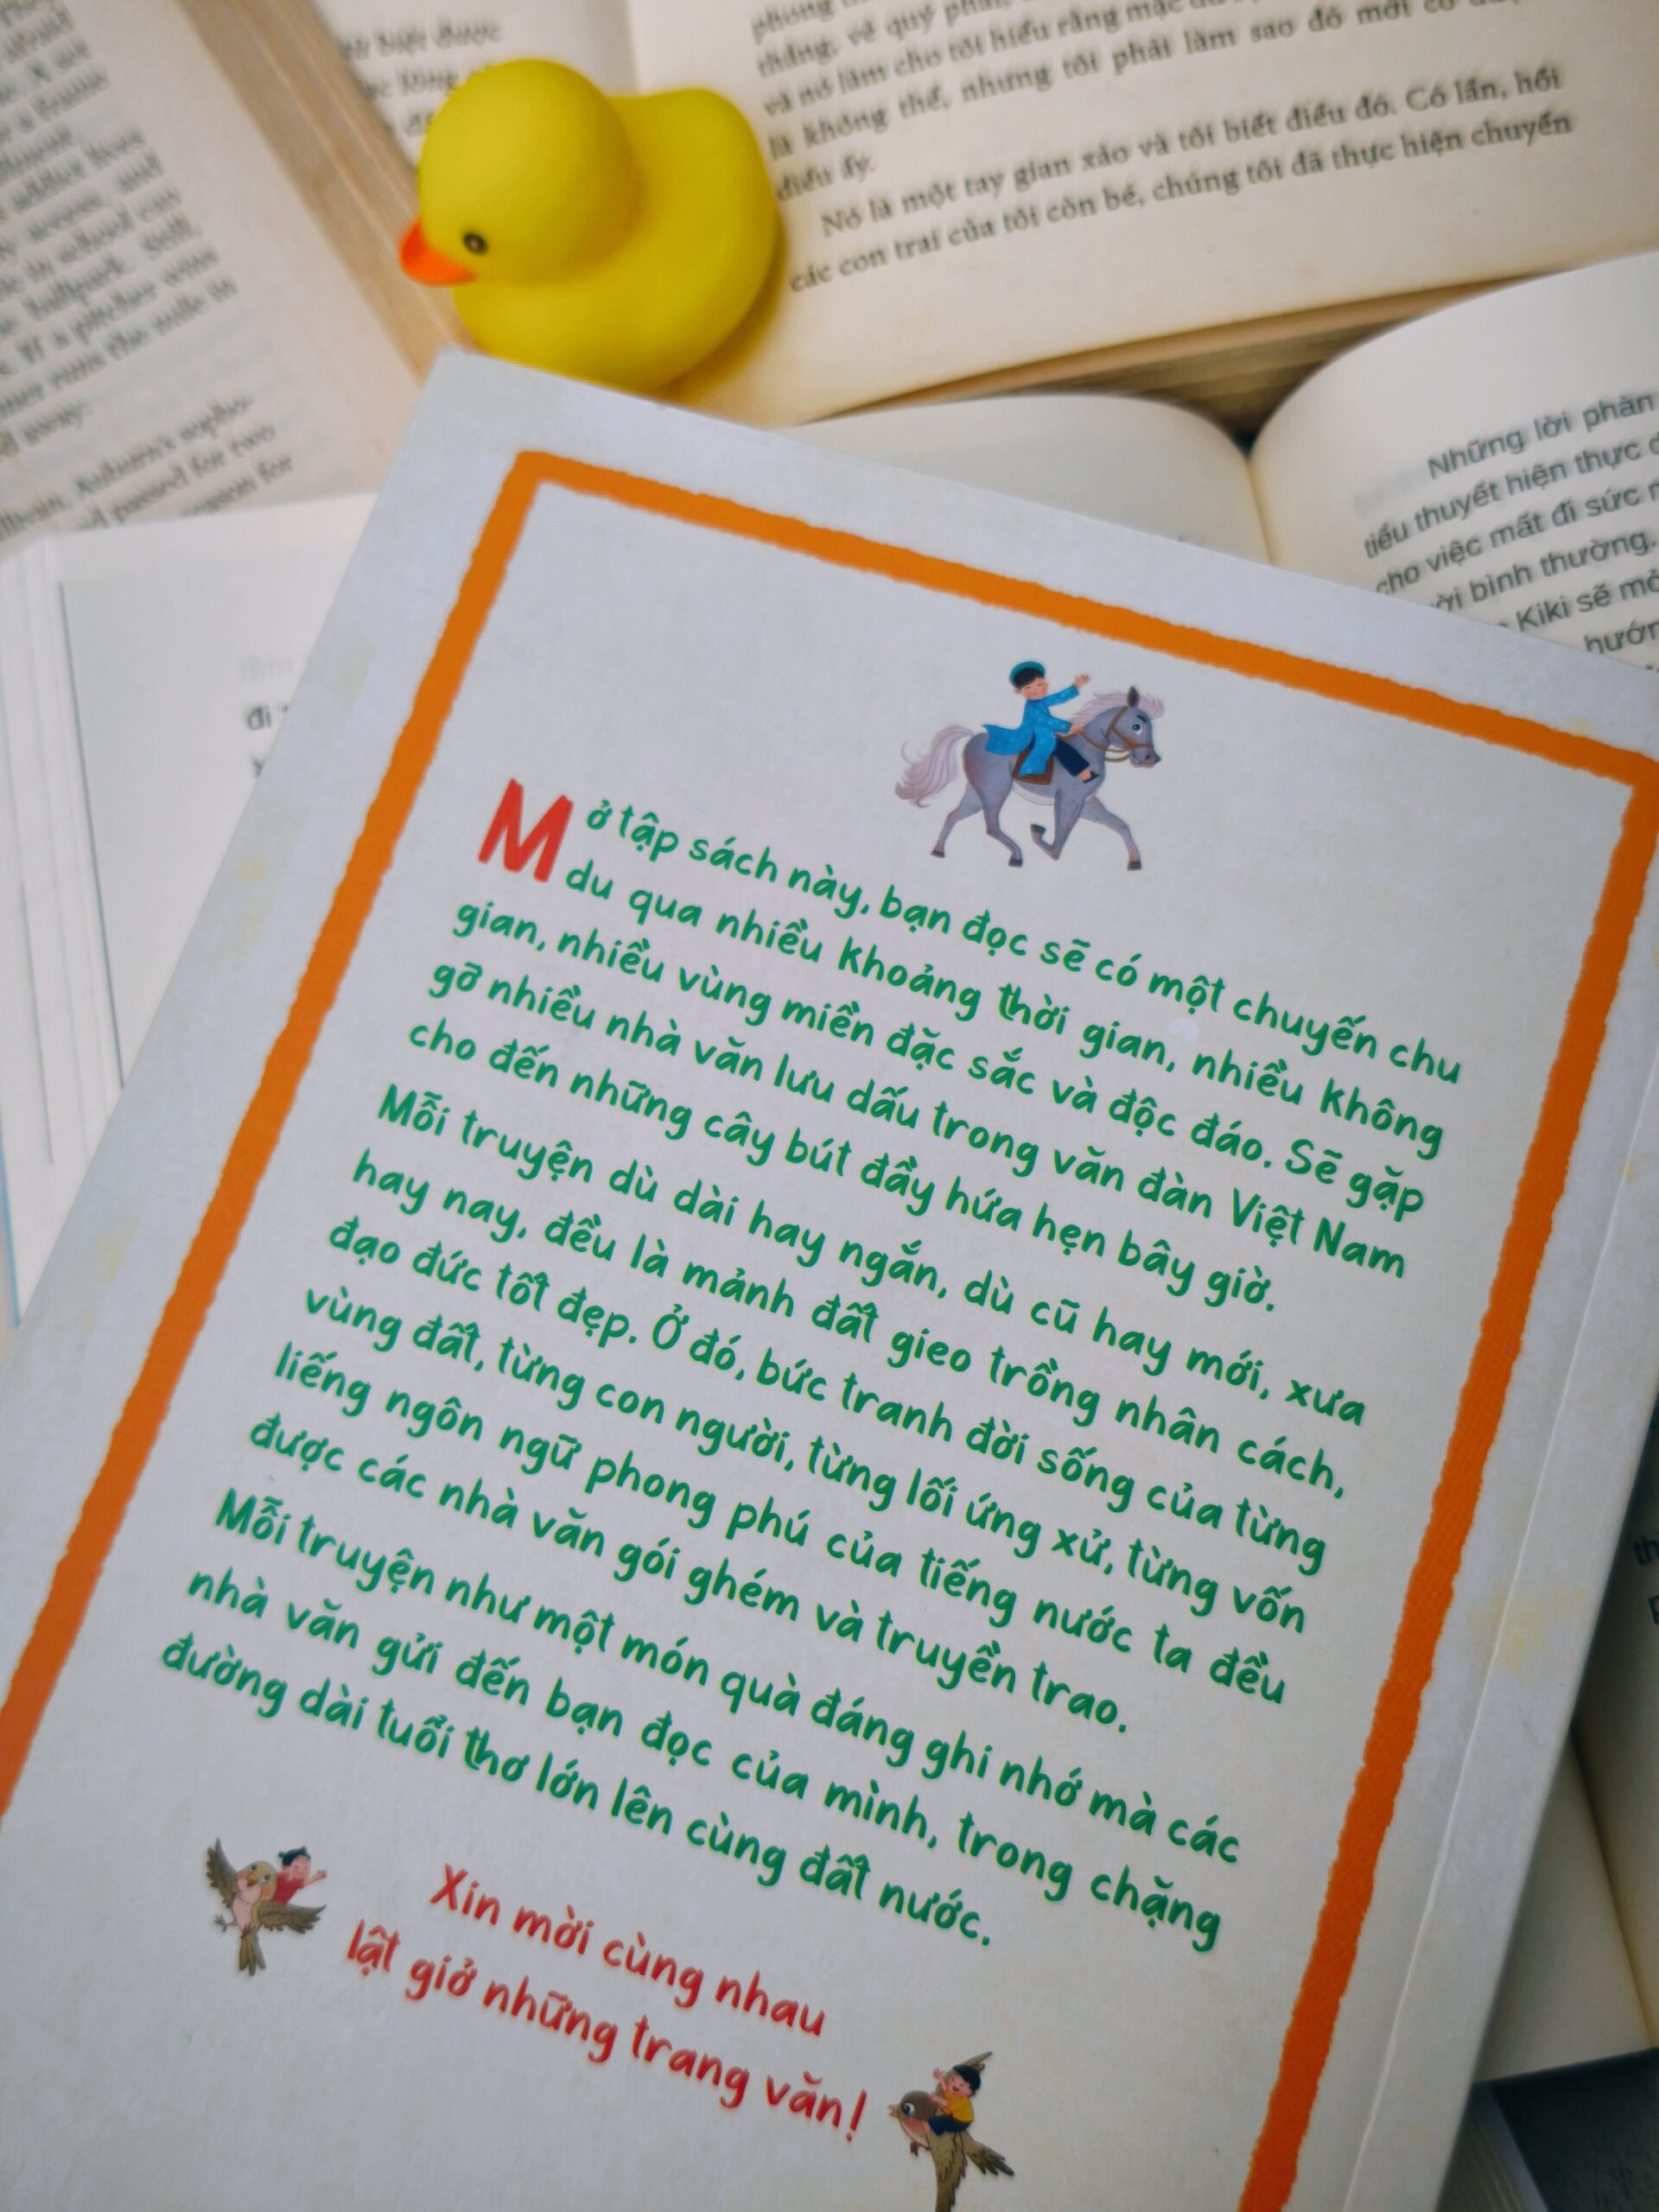 phong
thắng, về quý phái,
và nó làm cho tôi hiểu rằng mặc
là không thể, nhưng tôi phải làm sao đó mới có
điều ấy.
Nó là một tay gian xảo và tôi biết điều đó. Có lần, hồi
các con trai của tôi còn bé, chúng tôi đã thực hiện chuyến
biệt được
Những lời phàn
tiểu thuyết hiện thực
cho việc mất đi sức
bình thường.
Kiki sẽ
hướn
and
in school can
ballpark. Still,
If a pitcher wins
runs the mile in
away.
passed for two
season for
đi
Mở tập sách này, bạn đọc sẽ có một chuyến chu
du qua nhiều khoảng thời gian, nhiều không
gian, nhiều vùng miền đặc sắc và độc đáo. Sẽ gặp
gỡ nhiều nhà văn lưu dấu trong văn đàn Việt Nam
cho đến những cây bút đầy hứa hẹn bây giờ.
Mỗi truyện dù dài hay ngắn, dù cũ hay mới, xưa
hay nay, đều là mảnh đất gieo trồng nhân cách,
đạo đức tốt đẹp. Ở đó, bức tranh đời sống của từng
vùng đất, từng con người, từng lối ứng xử, từng vốn
liếng ngôn ngữ phong phú của tiếng nước ta đều
được các nhà văn gói ghém và truyền trao.
Mỗi truyện như một món quà đáng ghi nhớ mà các
nhà văn gửi đến bạn đọc của mình, trong chặng
đường dài tuổi thơ lớn lên cùng đất nước.
Xin mời cùng nhau
lật giở những trang văn!